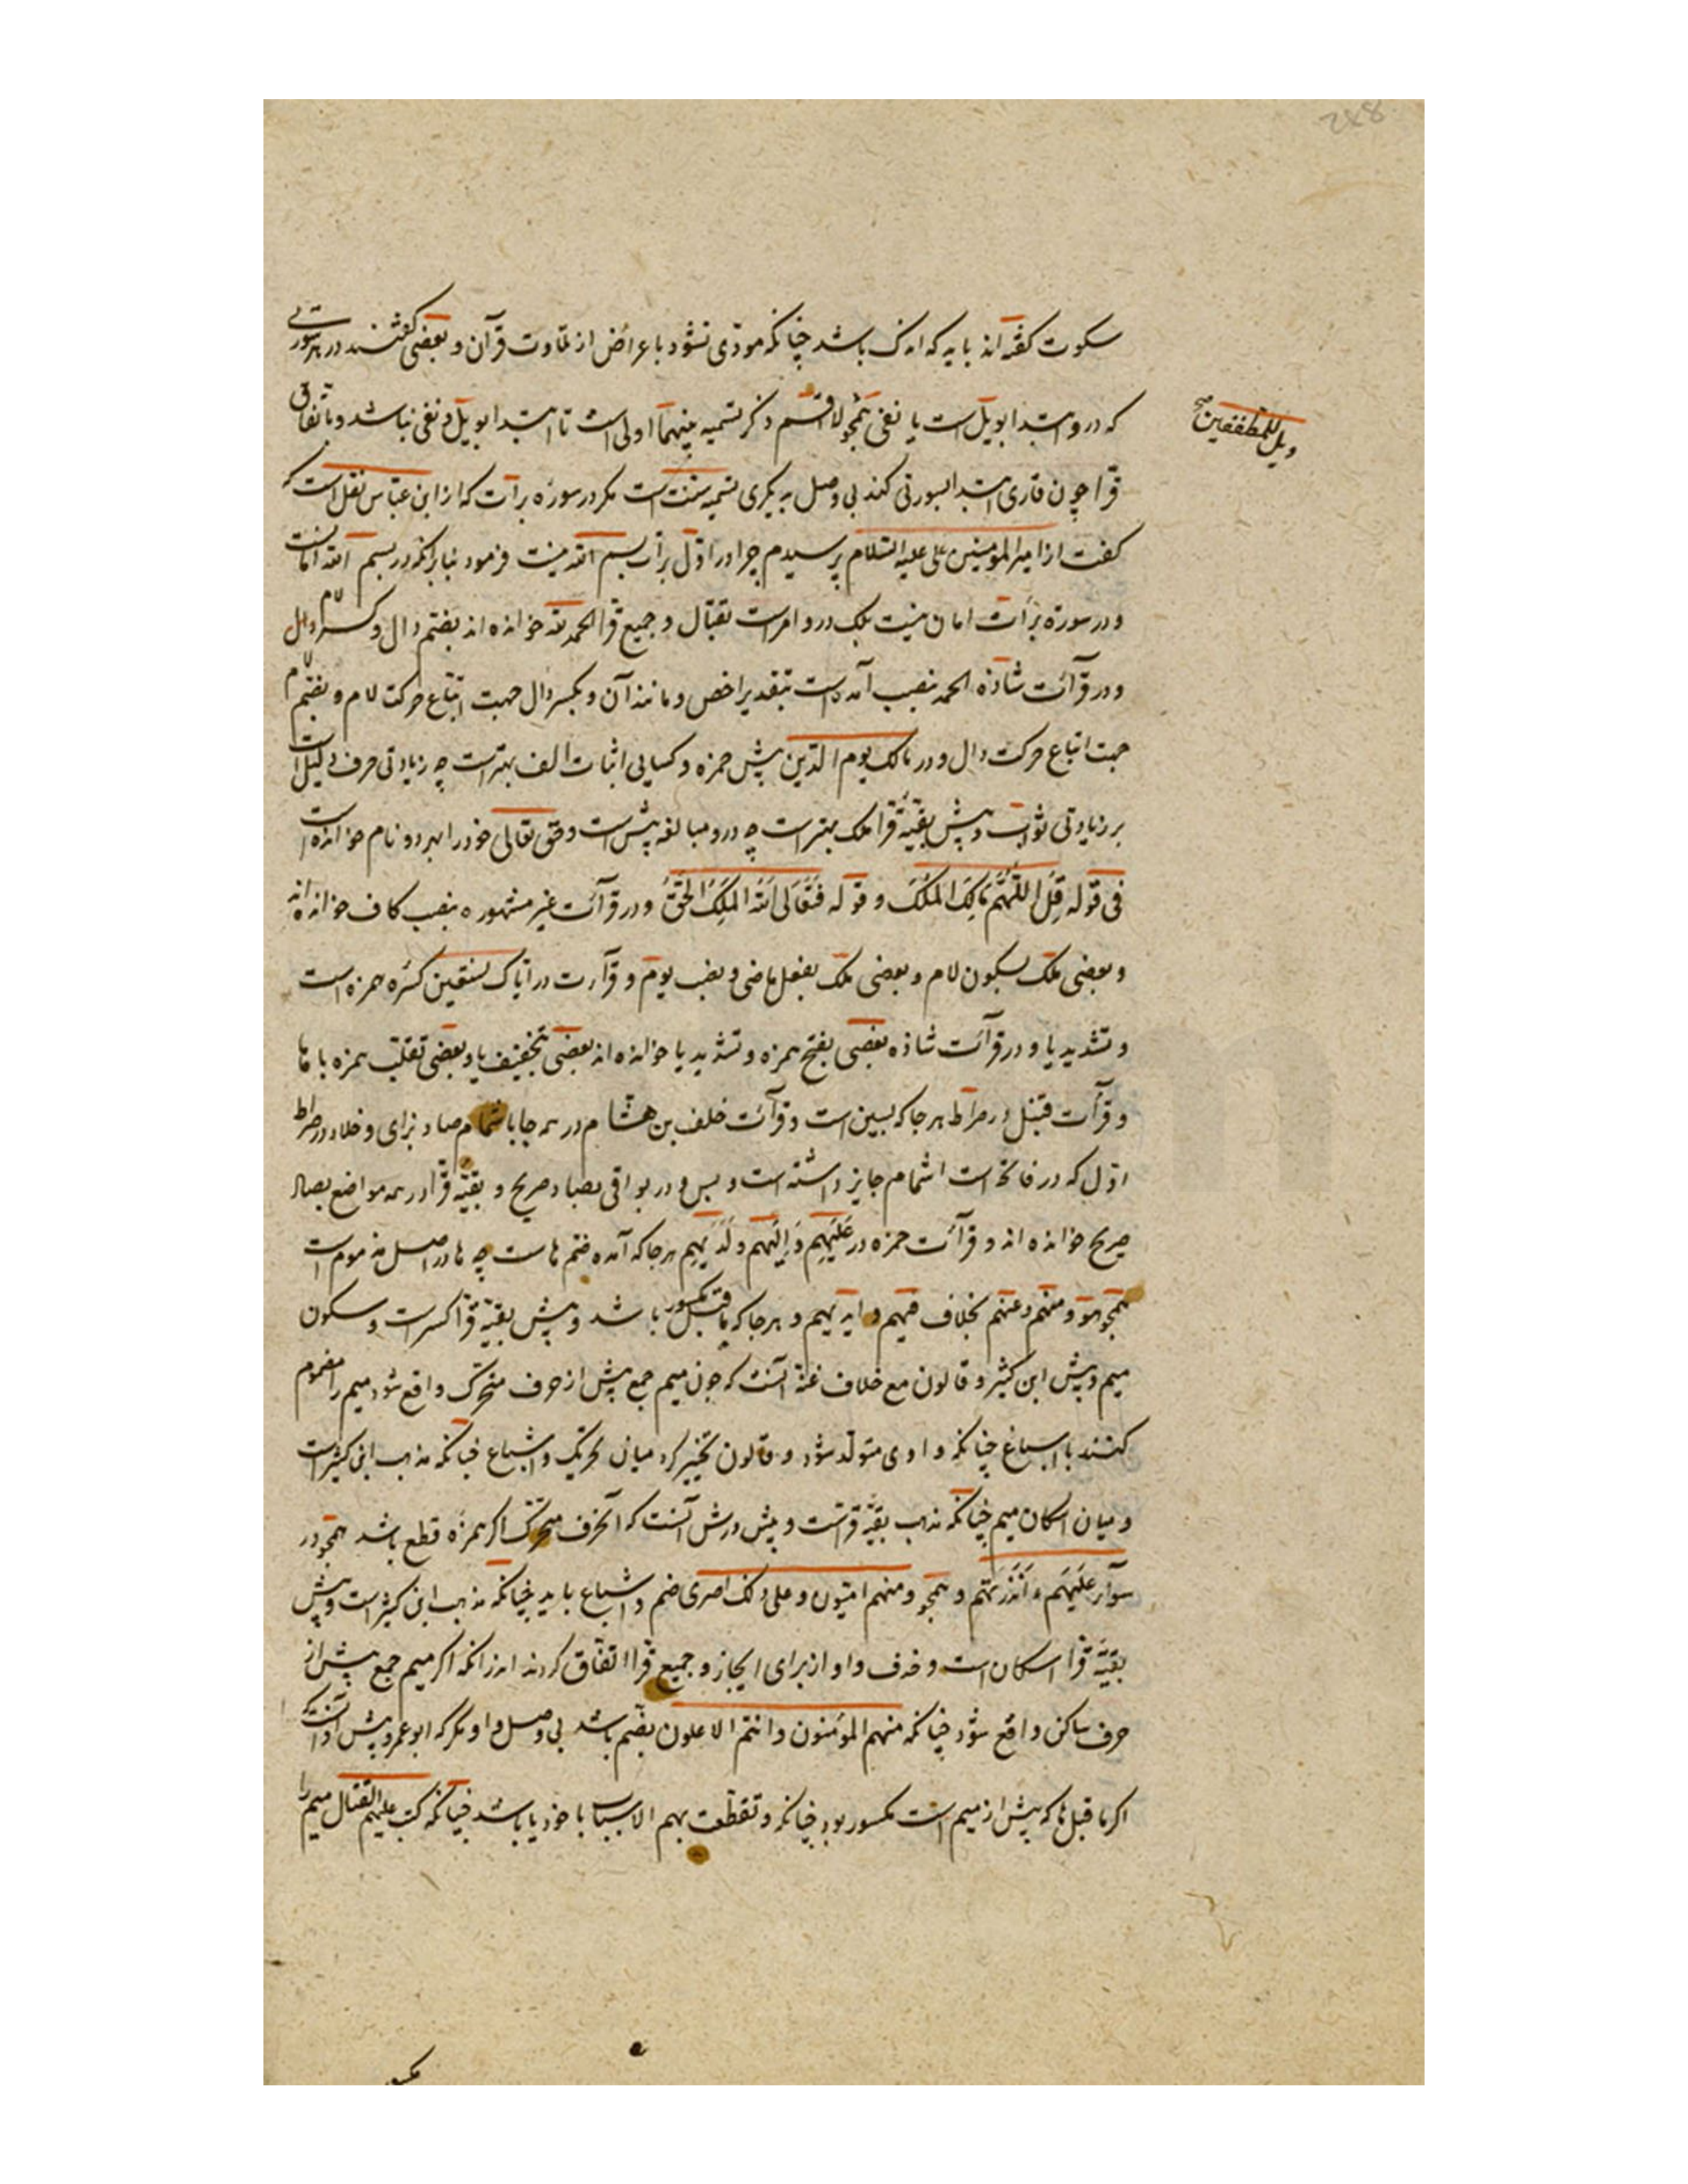 سکوت گفته‌اند باید که اندک باشد چنانکه مودّی نشود باعراض از تلاوت قرآن و بعضی گفتند در هر سورتی
که درو ابتدا بویل است یا نفی همچو لا اقسم ذکر تسمیه بینهما اولی است تا ابتدا بویل و نفی نباشد و باتفاق
ویل للمطففین صح
قرا چون قاری ابتدا بسورتی کند بی وصل بدیگری تسمیه سنّت است مگر در سوره برآت که از ابن عبّاس نقل است که
گفت از امیر المؤمنین علی علیه السّلام پرسیدم چرا در اوّل برآت بسم الله نیست فرمود بنابر آنکه در بسم الله امانست
و در سورة برآت امان نیست بلکه درو امر است بقتال و جمیع قرا الحمد لله خوانده‌اند بضمّ دال و کسر لام
و در قرآئت شاذه الحمد بنصب آمده است بتقدیر اخص و مانند آن و بکسر دال جهت اتباع حرکت لام و بضمّ لام
جهت اتباع حرکت دال و در مالک یوم الدّین پیش حمزه و کسایی اثبات الف بهتر است چه زیادتی حرف دلیل است
بر زیادتی ثواب و پیش بقیّه قرا ملک بهتر است چه درو مبالغه بیش است و حق تعالی خود را بهر دو نام خوانده است
فی قوله قل اللّهمّ مالک الملک و قوله فتعالی الله الملک الحقّ و در قرآئت غیر مشهوره بنصب کاف خوانده‌اند
و بعضی ملک بسکون لام و بعضی ملک بفعل ماضی و نصب یوم و قرآءت در ایّاک نستعین کسره همزه است
و تشدید یا و در قرآئت شاذه بعضی بفتح همزه و تشدید یا خوانده‌اند بعضی بتخفیف یا و بعضی بقلب همزه با ها
و قرآت قنبل در صراط هر جا که بسین است و قرآئت خلف بن هشام در همه جا باشمام صاد بزای و خلاد در صراط
اوّل که در فاتحه است اشمام جایز داشته است و بس و در بواقی بصاد صریح و بقیّه قرّا در همه مواضع بصاد
صریح خوانده‌اند و قرآئت حمزه در علیهم و الیهم و لدیهم هر جا که آمده ضمّ هاست چه ها در اصل مضموم است
همچو هو و منهم و عنهم بخلاف فیهم و ایدیهم و هر جا که ماقبل مکسور باشد و پیش بقیّة قرّا کسر است و سکون
میم و پیش ابن کثیر و قالون مع خلاف عنه آنست که چون میم جمع پیش از حرف متحرّک واقع شود میم را مضموم
کنند با اشباع چنانکه واوی متولّد شود و قالون تخییر کرد میان تحریک و اشباع چنانکه مذهب ابن کثیر است
و میان اسکان میم چنانکه مذهب بقیّه قرّاست و پیش ورش آنست که آنحرف متحرّک اگر همزه قطع باشد همچو در
سوآء علیهم ءانذرتهم و همچو و منهم امّیّون و علی ذلک اصری ضم و اشباع باید چنانکه مذهب ابن کثیر است و پیش
بقیّه قرّا اسکان است و حذف واو از برای ایجاز و جمیع قرّا اتفاق کردند اندر آنکه اگر میم جمع پیش از
حرف ساکن واقع شود چنانکه منهم المؤمنون و انتم الاعلون بضم باشد بی وصل واو مگر که ابو عمرو پیش او آنست که
اگر ماقبل ها که پیش از میم است مکسور بود چنانکه و تقطّعت بهم الاسباب یا خود یا باشد چنانکه کتب علیهم القتال میم را
مکسور